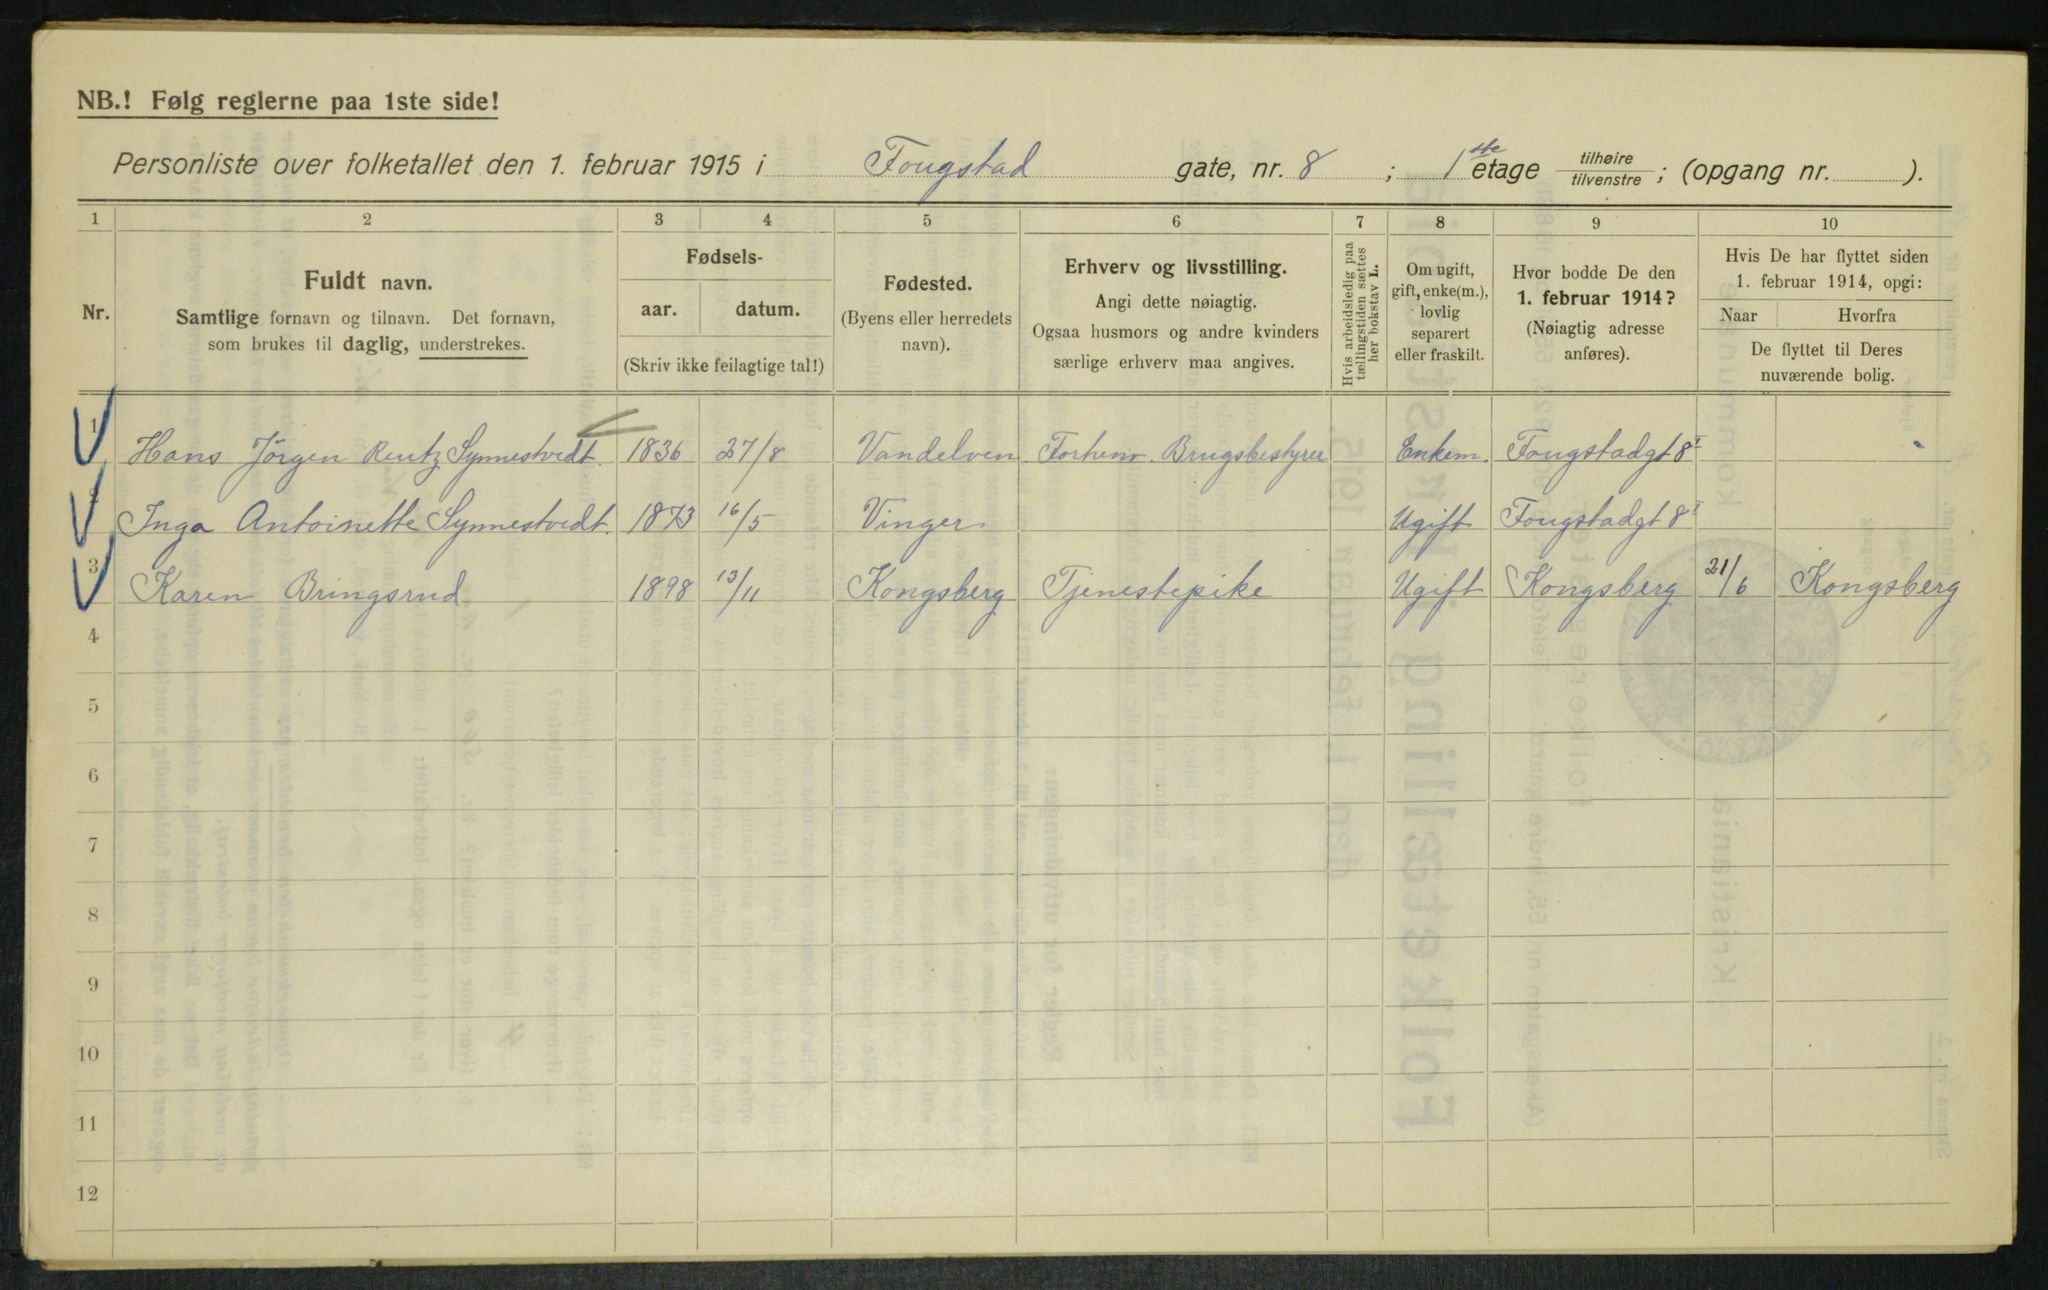 NB.! Følg reglerne paa 1ste side!
Personliste over folketallet den 1. februar 1915 i Fougstad gate, nr. 8 ; 1ste etage tilhøire / tilvenstre ; (opgang nr. ).
1 2 3 4 5 6 7 8 9 10
Nr.
Fuldt navn.
Samtlige fornavn og tilnavn. Det fornavn,
som brukes til daglig, understrekes.
Fødsels-
aar. datum.
(Skriv ikke feilagtige tal!)
Fødested.
(Byens eller herredets
navn).
Erhverv og livsstilling.
Angi dette nøiagtig.
Ogsaa husmors og andre kvinders
særlige erhverv maa angives.
Hvis arbeidsledig paa
tællingstiden sættes
her bokstav L.
Om ugift,
gift, enke(m.),
lovlig
separert
eller fraskilt.
Hvor bodde De den
1. februar 1914?
(Nøiagtig adresse
anføres).
Hvis De har flyttet siden
1. februar 1914, opgi:
Naar Hvorfra
De flyttet til Deres
nuværende bolig.
1 Hans Jörgen Rentz Synnestvedt. 1836 27/8 Vandelven Forhenv. Brugsbestyrer Enkem. Fougstadgt 8 I
2 Inga Antoinette Synnestvedt. 1873 16/5 Vinger Ugift Fougstadgt 8 I
3 Karen Bringsrud 1898 13/11 Kongsberg Tjenestepike Ugift Kongsberg 21/6 Kongsberg
4
5
6
7
8
9
10
11
12